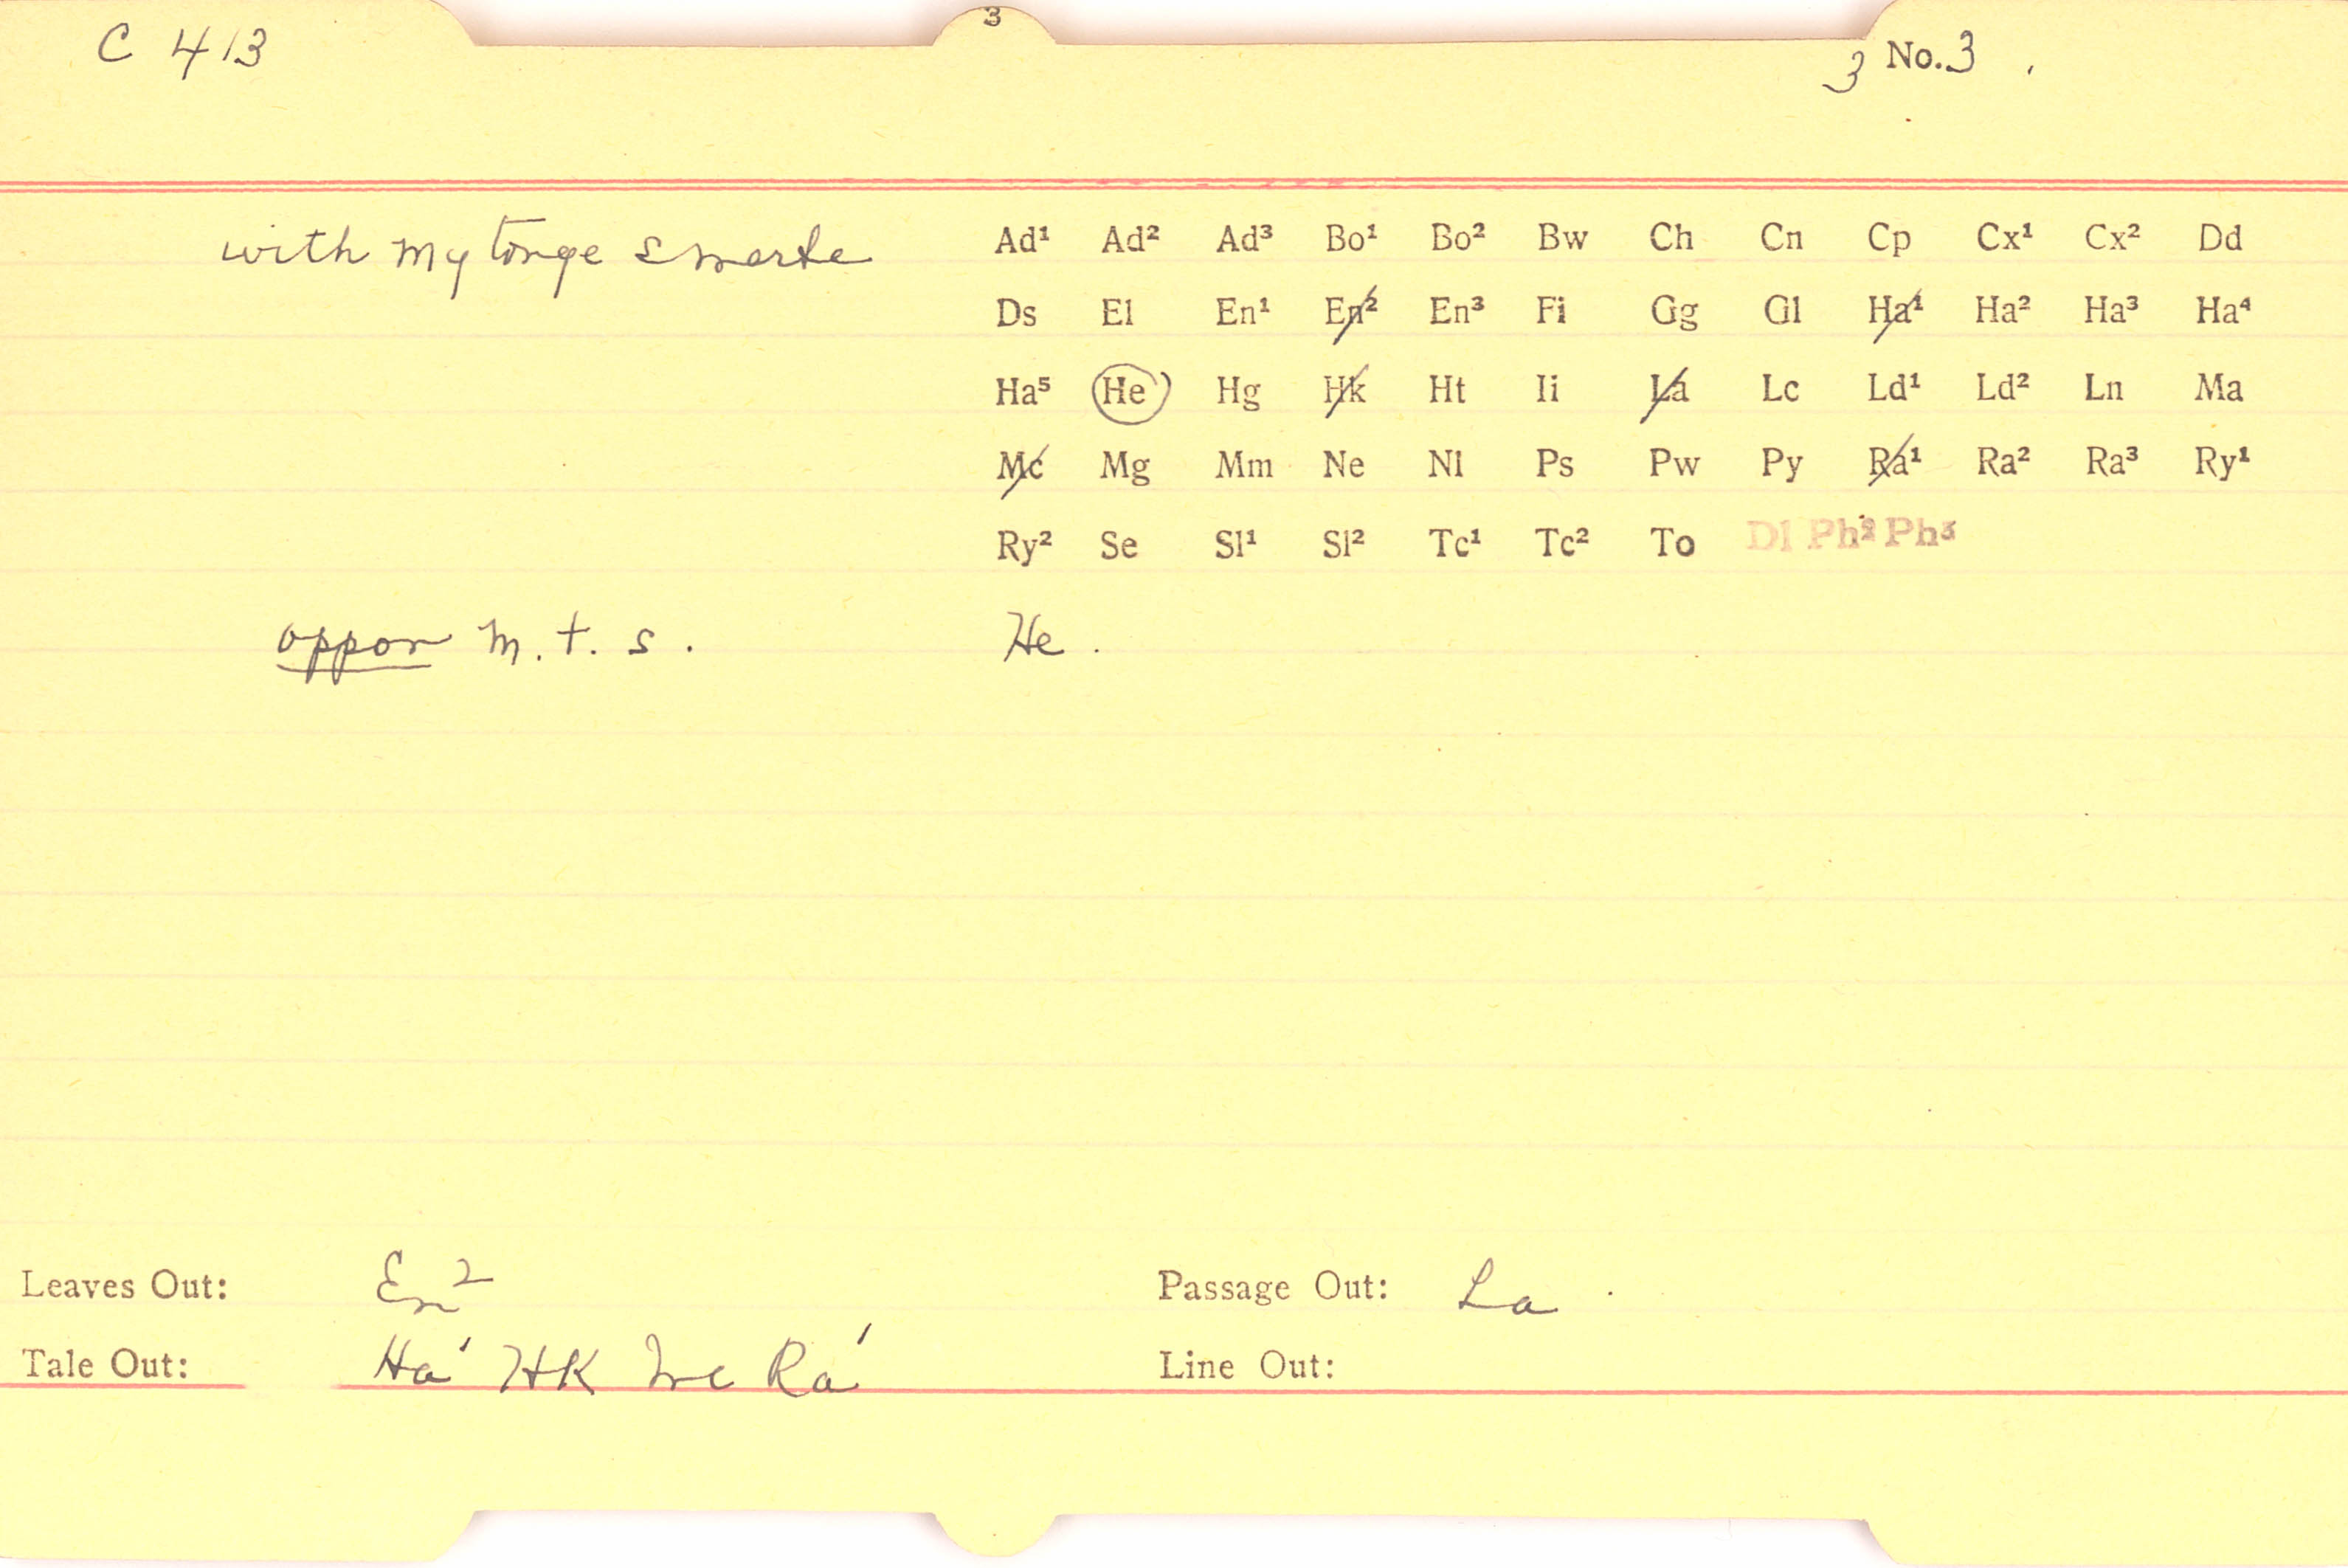 3
C 413
3 No. 3
with my tonge smerte
Ad¹ Ad² Ad³ Bo¹ Bo² Bw Ch Cn Cp Cx¹ Cx² Dd
Ds El En¹ En² En³ Fi Gg Gl Ha¹ Ha² Ha³ Ha⁴
Ha⁵ He Hg Hk Ht Ii La Lc Ld¹ Ld² Ln Ma
Mc Mg Mm Ne Nl Ps Pw Py Ra¹ Ra² Ra³ Ry¹
Ry² Se Sl¹ Sl² Tc¹ Tc² To Dl Ph² Ph³
oppon m. t. s. He.
Leaves Out: En² Passage Out: La.
Tale Out: Ha¹ HK Mc Ra¹ Line Out: